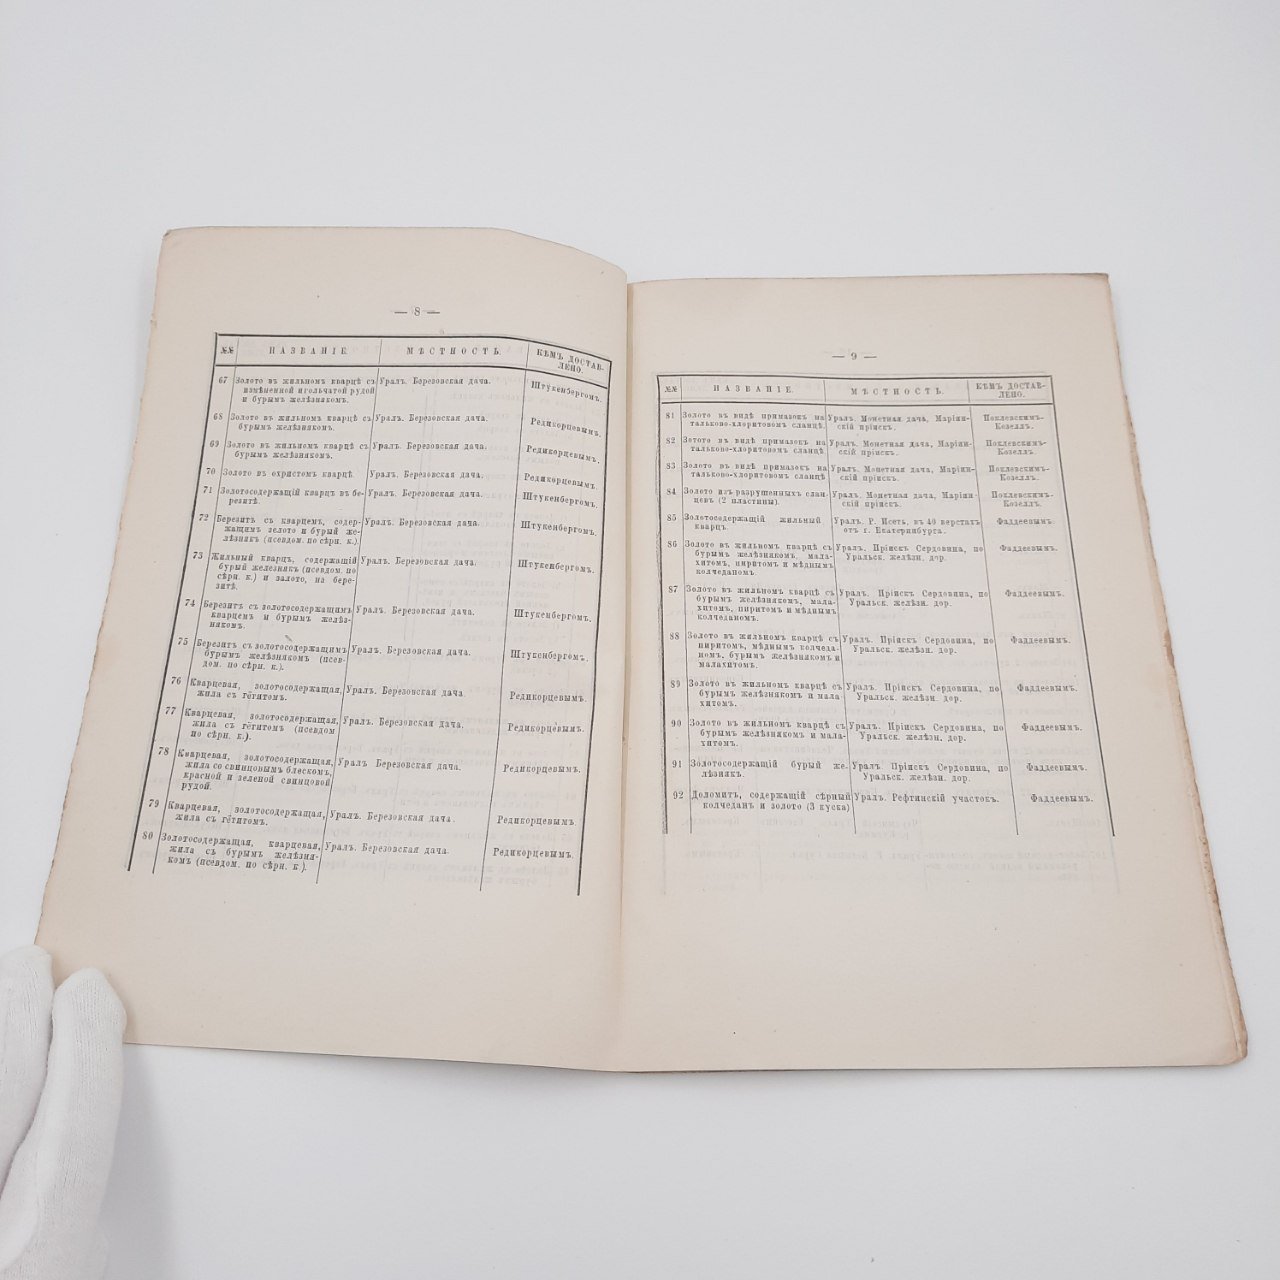 — 8 —
№№ НАЗВАНІЕ. МѢСТНОСТЬ. КѢМЪ ДОСТАВ-
ЛЕНО.
67 Золото въ жильномъ кварцѣ съ Уралъ. Березовская дача. Штукенбергомъ.
измѣненной игольчатой рудой
и бурымъ желѣзнякомъ.
68 Золото въ жильномъ кварцѣ съ Уралъ. Березовская дача. Редикорцевымъ.
бурымъ желѣзнякомъ.
69 Золото въ жильномъ кварцѣ съ Уралъ. Березовская дача. Редикорцевымъ.
бурымъ желѣзнякомъ.
70 Золото въ охристомъ кварцѣ. Уралъ. Березовская дача. Редикорцевымъ.
71 Золотосодержащій кварцъ въ бе- Уралъ. Березовская дача. Штукенбергомъ.
резитѣ.
72 Березитъ съ кварцемъ, содер- Уралъ. Березовская дача. Штукенбергомъ.
жащимъ золото и бурый же-
лѣзнякъ (псевдом. по сѣрн. к.).
73 Жильный кварцъ, содержащій Уралъ. Березовская дача. Штукенбергомъ.
бурый железнякъ (псевдом. по
сѣрн. к.) и залото, на бере-
зитѣ.
74 Березитъ съ золотосодержащимъ Уралъ. Березовская дача. Штукенбергомъ.
кварцемъ и бурымъ желѣз-
някомъ.
75 Березитъ съ золотосодержащимъ Уралъ. Березовская дача. Штукенбергомъ.
бурымъ желѣзнякомъ (псев-
дом. по сѣрн. к.).
76 Кварцевая, золотосодержащая, Уралъ. Березовская дача. Редикорцевымъ.
жила съ гётитомъ.
77 Кварцевая, золотосодержащая, Уралъ. Березовская дача. Редикорцевымъ.
жила съ гётитомъ (псевдом
по сѣрн. к.).
78 Кварцевая, золотосодержащая, Уралъ. Березовская дача. Редикорцевымъ.
жила со свинцовымъ блескомъ,
красной и зеленой свинцовой
рудой.
79 Кварцевая, золотосодержащая, Уралъ. Березовская дача. Редикорцевымъ.
жила съ гётитомъ.
80 Золотосодержащая, кварцевая, Уралъ. Березовская дача. Редикорцевымъ.
жила съ бурымъ желѣзня-
комъ (псевдом. по сѣрн. к.).
— 9 —
№№ НАЗВАНІЕ. МѢСТНОСТЬ. КѢМЪ ДОСТАВ-
ЛЕНО.
81 Золото въ видѣ примазокъ на Уралъ. Монетная дача, Маріин- Поклевскимъ-
тальково-хлоритовомъ сланцѣ. скій прінскъ. Козеллъ.
82 Зотото въ видѣ примазокъ на Уралъ. Монетная дача, Маріин- Поклевскимъ-
тальково-хлоритовомъ сланцѣ скій прінскъ. Козеллъ.
83 Золото въ видѣ примазокъ на Уралъ. Монетная дача, Маріин- Поклевскимъ-
тальково-хлоритовомъ сланцѣ скій прінскъ. Козеллъ.
84 Золото изъ разрушенныхъ слан- Уралъ. Монетная дача, Маріин- Поклевскимъ-
цевъ (2 пластины). скій прінскъ. Козеллъ.
85 Золотосодержащій жильный Уралъ. Р. Исеть, въ 40 верстахъ Фаддеевымъ.
кварцъ. отъ г. Екатеринбурга.
86 Золото въ жильномъ кварцѣ съ Уралъ. Прінскъ Сердовина, по Фаддеевымъ.
бурымъ желѣзнякомъ, мала- Уральск. желѣзн. дор.
хитомъ, пиритомъ и мѣднымъ
колчеданомъ.
87 Золото въ жильномъ кварцѣ съ Уралъ. Прінскъ Сердовина, по Фаддеевымъ.
бурымъ желѣзнякомъ, мала- Уральск. желѣзн. дор.
хитомъ, пиритомъ и мѣднымъ
колчеданомъ.
88 Золото въ жильномъ кварцѣ съ Уралъ. Прінскъ Сердовина, по Фаддеевымъ.
пиритомъ, мѣднымъ колчеда- Уральск. желѣзн. дор.
номъ, бурымъ желѣзнякомъ и
малахитомъ.
89 Золото въ жильномъ кварцѣ съ Уралъ. Прінскъ Сердовина, по Фаддеевымъ.
бурымъ желѣзнякомъ и мала- Уральск. желѣзн. дор.
хитомъ.
90 Золото въ жильномъ кварцѣ съ Уралъ. Прінскъ Сердовина, по Фаддеевымъ.
бурымъ желѣзнякомъ и мала- Уральск. желѣзн. дор.
хитомъ.
91 Золотосодержащій бурый же- Уралъ. Прінскъ Сердовина, по Фаддеевымъ.
лѣзнякъ. Уральск. желѣзн. дор.
92 Доломитъ, содержащій сѣрный Уралъ. Рефтинскій участокъ. Фаддеевымъ.
колчеданъ и золото (3 куска)